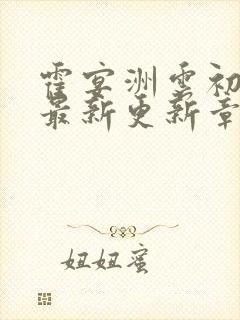 霍宴洲云初
最新更新章
妞妞蜜